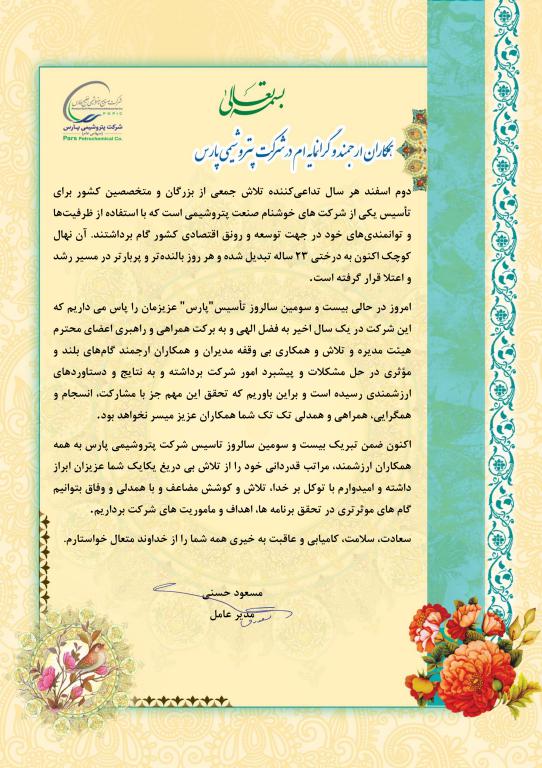 بسمه تعالی
شرکت پتروشیمی پارس
(سهامی عام)
Pars Petrochemical Co.
همکاران ارجمند و گرانمایه ام در شرکت پتروشیمی پارس
دوم اسفند هر سال تداعی‌کننده تلاش جمعی از بزرگان و متخصصین کشور برای
تأسیس یکی از شرکت های خوشنام صنعت پتروشیمی است که با استفاده از ظرفیت‌ها
و توانمندی‌های خود در جهت توسعه و رونق اقتصادی کشور گام برداشتند. آن نهال
کوچک اکنون به درختی ۲۳ ساله تبدیل شده و هر روز بالنده‌تر و پربارتر در مسیر رشد
و اعتلا قرار گرفته است.
امروز در حالی بیست و سومین سالروز تأسیس"پارس" عزیزمان را پاس می داریم که
این شرکت در یک سال اخیر به فضل الهی و به برکت همراهی و راهبری اعضای محترم
هیئت مدیره و تلاش و همکاری بی وقفه مدیران و همکاران ارجمند گام‌های بلند و
مؤثری در حل مشکلات و پیشبرد امور شرکت برداشته و به نتایج و دستاوردهای
ارزشمندی رسیده است و براین باوریم که تحقق این مهم جز با مشارکت، انسجام و
همگرایی، همراهی و همدلی تک تک شما همکاران عزیز میسر نخواهد بود.
اکنون ضمن تبریک بیست و سومین سالروز تاسیس شرکت پتروشیمی پارس به همه
همکاران ارزشمند، مراتب قدردانی خود را از تلاش بی دریغ یکایک شما عزیزان ابراز
داشته و امیدوارم با توکل بر خدا، تلاش و کوشش مضاعف و با همدلی و وفاق بتوانیم
گام های موثرتری در تحقق برنامه ها، اهداف و ماموریت های شرکت برداریم.
سعادت، سلامت، کامیابی و عاقبت به خیری همه شما را از خداوند متعال خواستارم.
مسعود حسنی
مدیر عامل